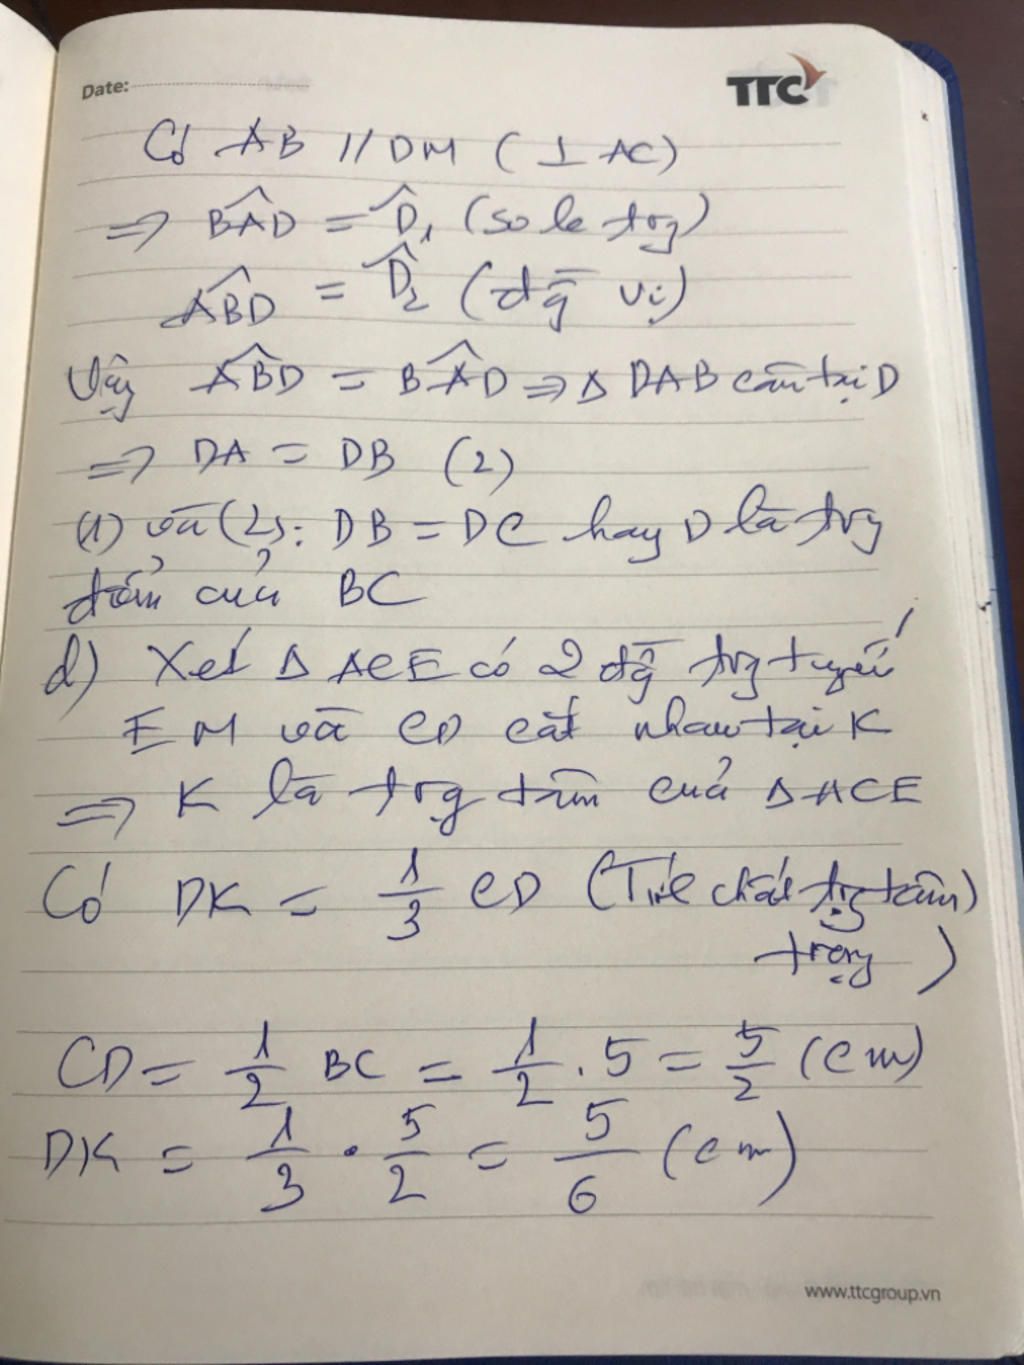 Date:
TTC
Có AB // DM ( ⊥ AC)
⇒ BAD^ = D^₁ (so le trg)
ABD^ = D^₂ (đg̀ vị)
Vậy ABD^ = BAD^ ⇒ Δ DAB cân tại D
⇒ DA = DB (2)
(1) và (2): DB = DC hay D là trg
điểm của BC
d) Xét Δ ACE có 2 đg̀ trg tuyến
EM và CD cắt nhau tại K
⇒ K là trg tâm của Δ ACE
Có DK = 1/3 CD (T/c chất trg tâm)
trọng )
CD = 1/2 BC = 1/2 . 5 = 5/2 (cm)
DK = 1/3 . 5/2 = 5/6 (cm)
www.ttcgroup.vn